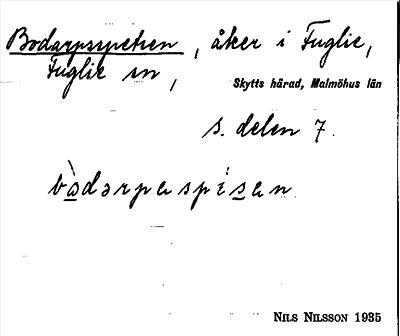 Bodarpsspetsen, åker i Fuglie,
Fuglie sn,
Skytts härad, Malmöhus län
s. delen 7.
NILS NILSSON 1935